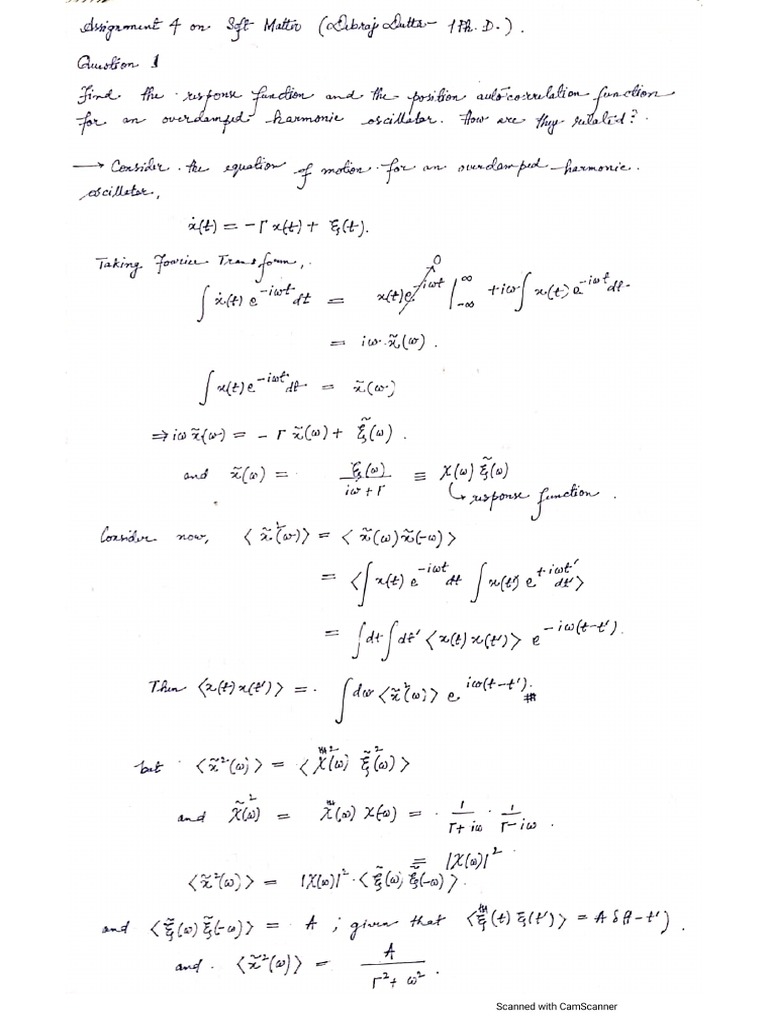 Assignment 4 on Soft Matter (Debraj Dutta - 1Ph.D.).
Question 1
Find the response function and the position autocorrelation function
for an overdamped harmonic oscillator. How are they related?
→ Consider the equation of motion for an overdamped harmonic
oscillator,
ẋ(t) = -Γ x(t) + ξ(t).
Taking Fourier Transform,
∫ ẋ(t) e^{-iωt} dt = x(t)e^{-iωt} |_{-∞}^{∞} → 0 + iω ∫ x(t) e^{-iωt} dt
= iω x̃(ω).
∫ x(t) e^{-iωt} dt = x̃(ω)
⇒ iω x̃(ω) = -Γ x̃(ω) + ξ̃(ω).
and x̃(ω) = ξ̃(ω) / (iω + Γ) ≡ χ(ω) ξ̃(ω)
↳ response function.
Consider now, ⟨x̃²(ω)⟩ = ⟨x̃(ω) x̃(-ω)⟩
= ⟨∫ x(t) e^{-iωt} dt ∫ x(t') e^{+iωt'} dt'⟩
= ∫dt ∫dt' ⟨x(t) x(t')⟩ e^{-iω(t-t')}.
Then ⟨x(t) x(t')⟩ = ∫ dω ⟨x̃²(ω)⟩ e^{iω(t-t')}. #
but ⟨x̃²(ω)⟩ = ⟨χ²(ω) ξ̃²(ω)⟩
and χ̃²(ω) = χ(ω) χ(-ω) = 1/(Γ+iω) · 1/(Γ-iω).
= |χ(ω)|²
⟨x̃²(ω)⟩ = |χ(ω)|² · ⟨ξ̃(ω) ξ̃(-ω)⟩.
and ⟨ξ̃(ω) ξ̃(-ω)⟩ = A ; given that ⟨ξ(t) ξ(t')⟩ = A δ(t-t').
and ⟨x̃²(ω)⟩ = A / (Γ² + ω²).
Scanned with CamScanner